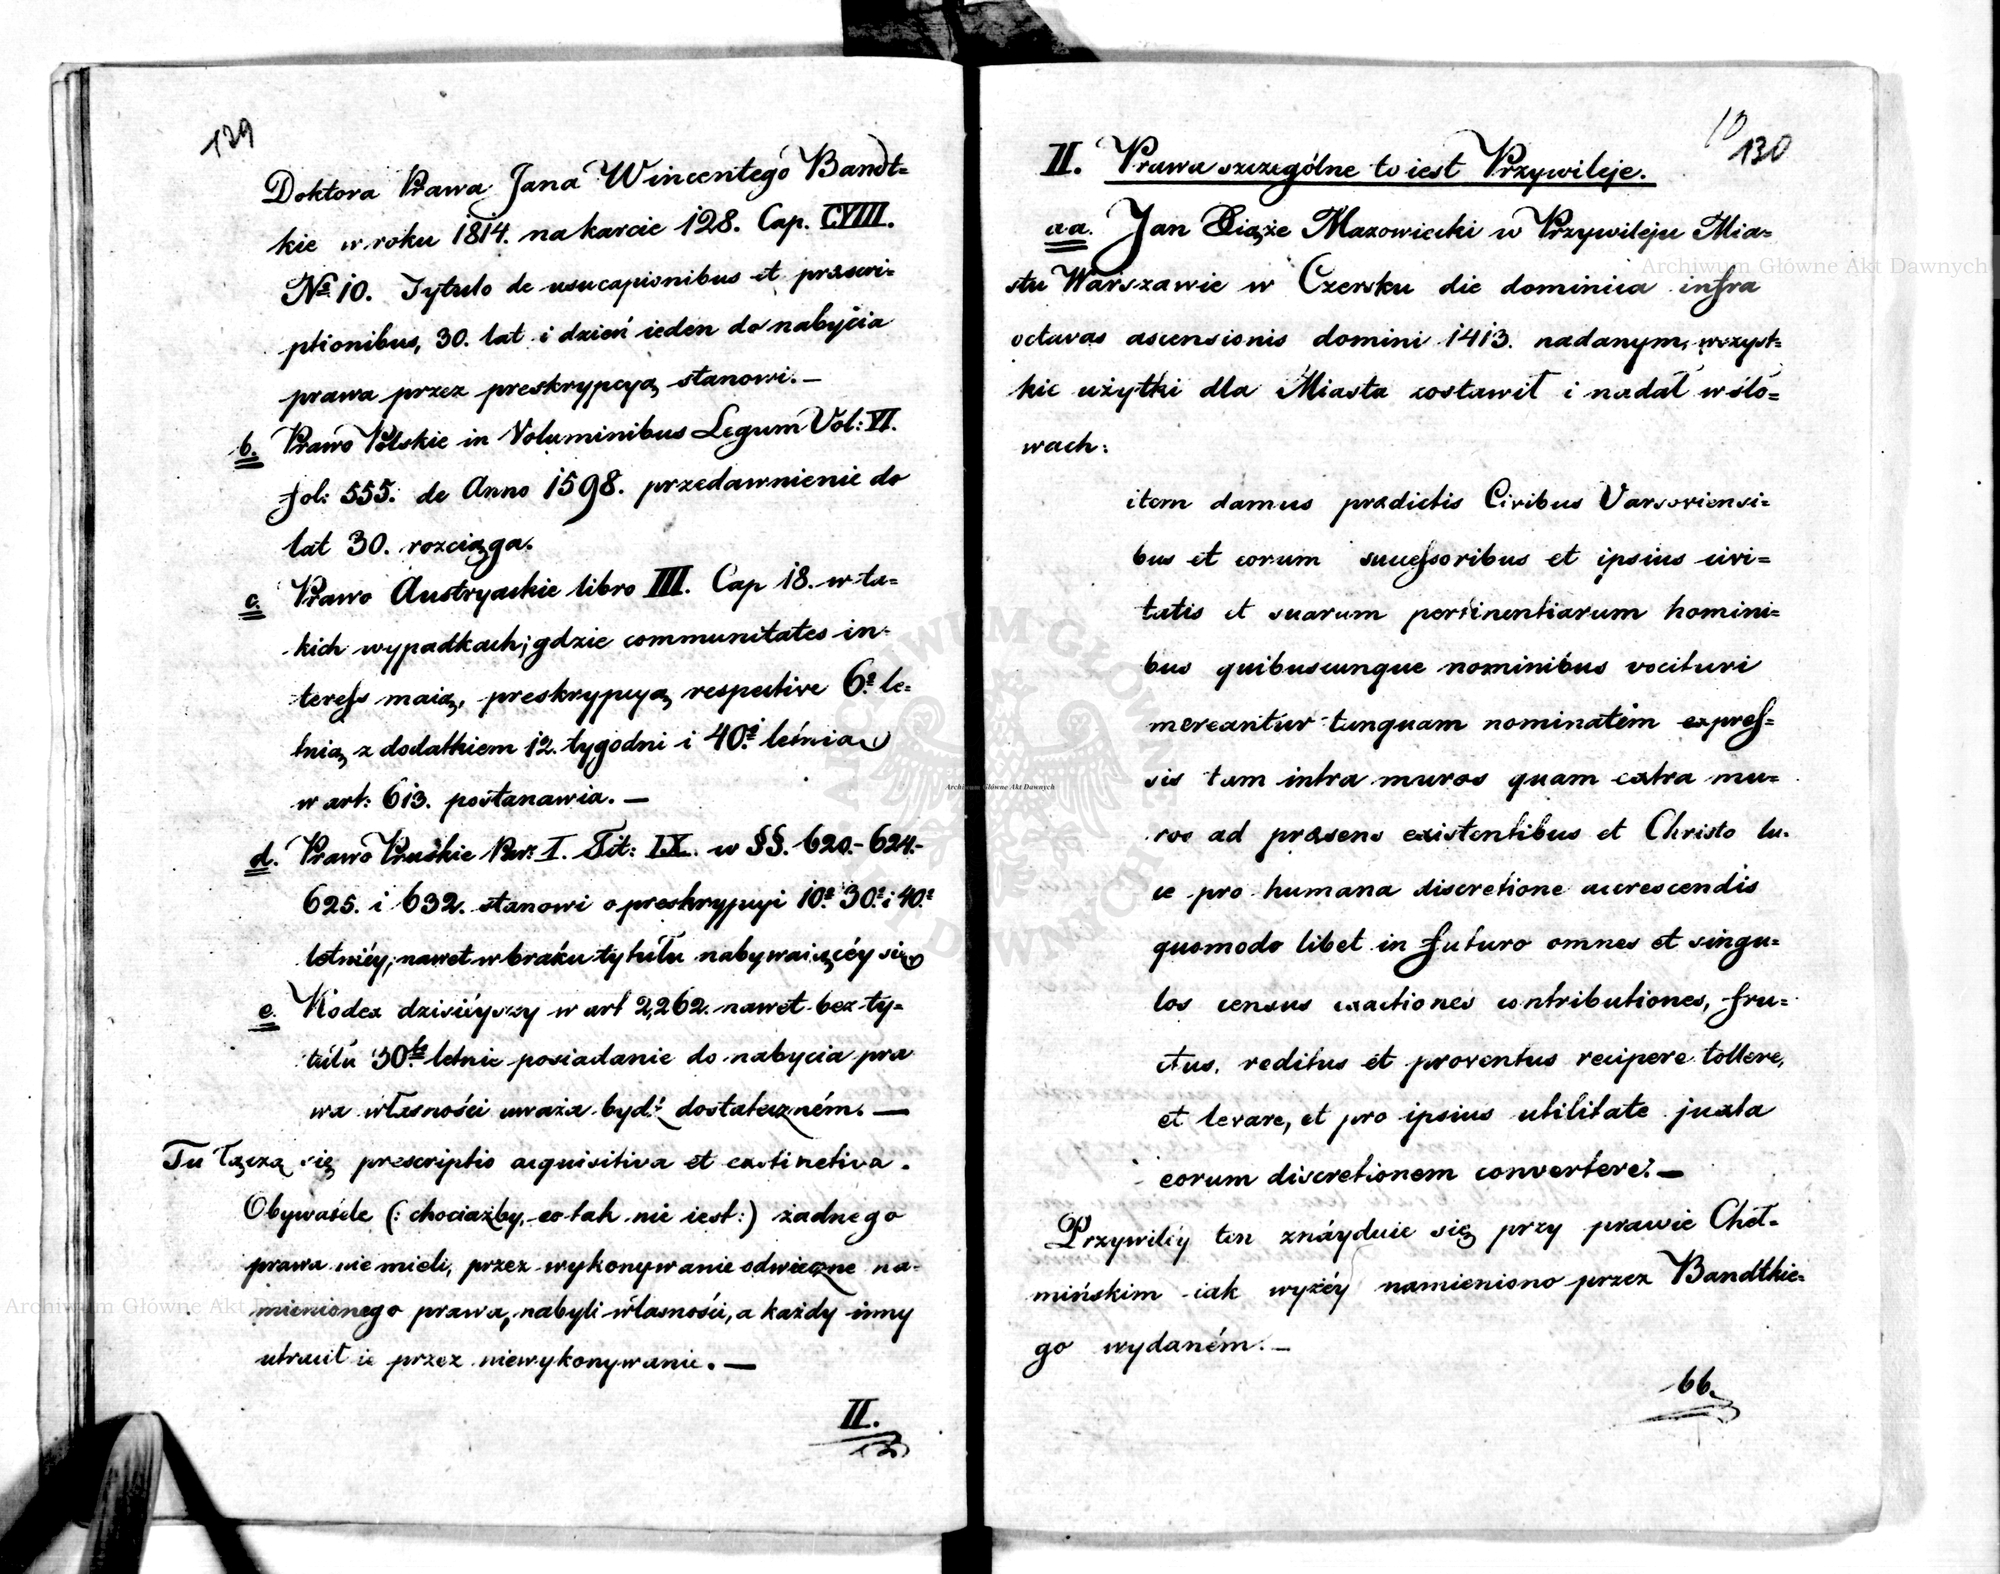 129
Doktora Prawa Jana Wincentego Bandt=
kie w roku 1814. na karcie 128. Cap. CVIII.
No 10. Tytulo de usucapionibus et præscri=
ptionibus, 30. lat i dzień ieden do nabycia
prawa przez preskrypcyą stanowi. —
b. Prawo Polskie in Voluminibus Legum Vol: VI.
fol: 555. de Anno 1598. przedawnienie do
lat 30. rozciąga.
c. Prawo Austryackie libro III. Cap 18. w ta=
kich wypadkach; gdzie communitates in=
teress maią, preskrypcyą respective 6º le=
tnią z dodatkiem 12. tygodni i 40º letnią
w art: 613. postanawia. —
d. Prawo Pruskie Par: I. Tit: IX. w §§. 620.- 624.-
625. i 632. stanowi o preskrypcyi 10º 30º i 40º
letniéy, nawet w braku tytułu nabywaiącéy się
e. Kodex dzisiéyszy w art 2,262. nawet bez ty=
tułu 30to letnie posiadanie do nabycia pra
wa własności uważa bydź dostateczném. —
Tu łączą się prescriptio acquisitiva et extinctiva.
Obywatele (: chociażby, co tak nie iest:) żadnego
prawa nie mieli, przez wykonywanie odwieczne na=
mienionego prawa, nabyli własności, a każdy inny
utracił ie przez niewykonywanie. —
II.
10
130
II. Prawa szczególne to iest Przywileje.
aa. Jan Xiąże Mazowiecki w Przywileju Mia=
stu Warszawie w Czersku die dominica infra
octavas ascensionis domini 1413. nadanym, wszyst=
kie użytki dla Miasta zostawił i nadał w sło=
wach:
item damus prædictis Civibus Varsoviensi=
bus et eorum successoribus et ipsius civi=
tatis et suarum pertinentiarum homini=
bus quibuscunque nominibus vocituri
mereantur tanquam nominatim expres=
sis tam intra muros quam extra mu=
ros ad præsens existentibus et Christo lu=
ce pro humana discretione accrescendis
quomodo libet in futuro omnes et singu=
los census exactiones contributiones, fru=
ctus, reditus et proventus recipere tollere,
et levare, et pro ipsius utilitate juxta
eorum discretionem convertere. —
Przywiléy ten znáyduie się przy prawie Cheł=
mińskim iak wyżéy namieniono przez Bandtkie=
go wydaném. —
bb.
Archiwum Główne Akt Dawnych
Archiwum Główne Akt Dawnych
Archiwum Główne Akt Dawnych